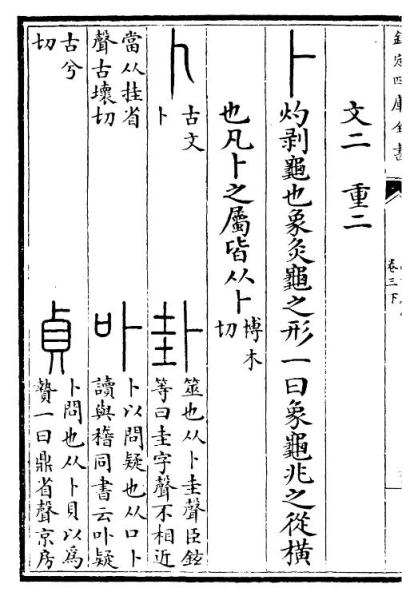 欽定四庫全書
卷三下
文二　重二
卜 灼剥龜也象灸龜之形一曰象龜兆之從橫
也凡卜之屬皆从卜 博木
切
𠁡 古文
卜
卦 筮也从卜圭聲臣鉉
等曰圭字聲不相近
當从挂省
聲古壞切
卟 卜以問疑也从口卜
讀與稽同書云卟疑
古兮
切
貞 卜問也从卜貝以爲
贄一曰鼎省聲京房